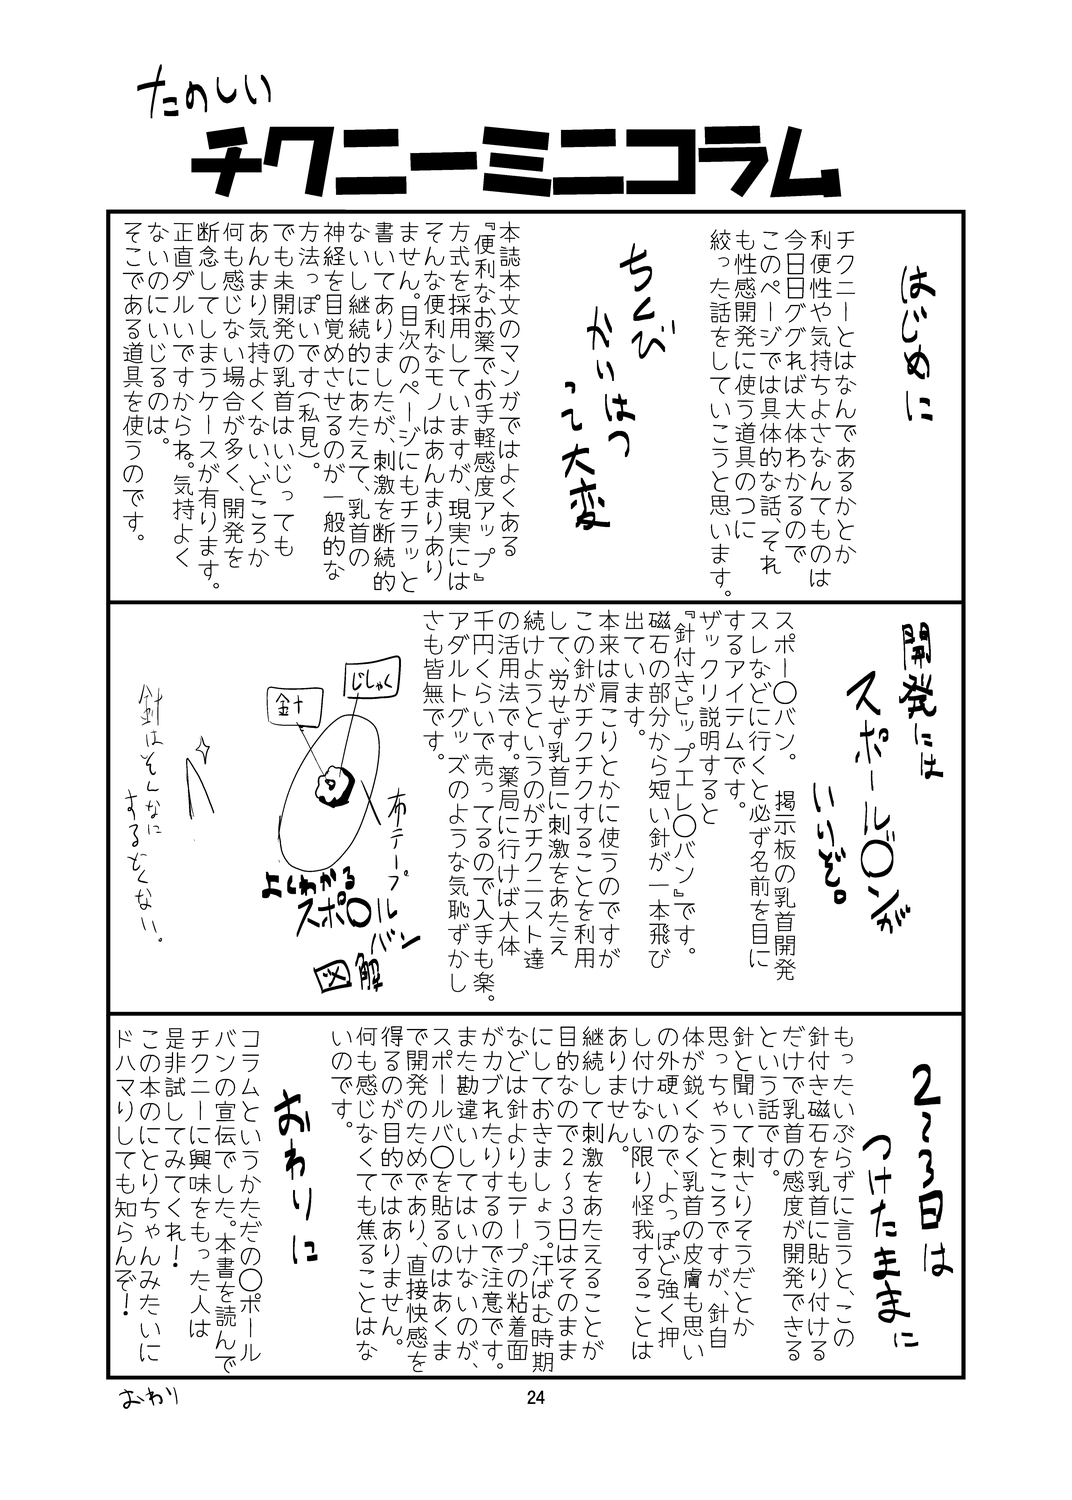 たのしい
チクニーミニコラム
はじめに
チクニーとはなんであるかとか
利便性や気持ちよさなんてものは
今日日ググれば大体わかるので
このページでは具体的な話、それ
も性感開発に使う道具のつに
絞った話をしていこうと思います。
ちくび
かいはつ
って大変
本誌本文のマンガではよくある
『便利なお薬でお手軽感度アップ』
方式を採用していますが、現実には
そんな便利なモノはあんまりあり
ません。目次のページにもチラッと
書いてありましたが、刺激を断続的
ないし継続的にあたえて、乳首の
神経を目覚めさせるのが一般的な
方法っぽいです(私見)。
でも未開発の乳首はいじっても
あんまり気持よくない、どころか
何も感じない場合が多く、開発を
断念してしまうケースが有ります。
正直ダルいですからね。気持よく
ないのにいじるのは。
そこである道具を使うのです。
開発には
スポール〇ンが
いいぞ。
スポー〇バン。　掲示板の乳首開発
スレなどに行くと必ず名前を目に
するアイテムです。
ザックリ説明すると
『針付きピップエレ〇バン』です。
磁石の部分から短い針が一本飛び
出ています。
本来は肩こりとかに使うのですが
この針がチクチクすることを利用
して、労せず乳首に刺激をあたえ
続けようというのがチクニスト達
の活用法です。薬局に行けば大体
千円くらいで売ってるので入手も楽。
アダルトグッズのような気恥ずかし
さも皆無です。
じしゃく
針
布テープ
よくわかる
スポ〇ル
バン
図解
針はそんなに
するどくない。
2〜3日は
つけたままに
もったいぶらずに言うと、この
針付き磁石を乳首に貼り付ける
だけで乳首の感度が開発できる
という話です。
針と聞いて刺さりそうだとか
思っちゃうところですが、針自
体が鋭くなく乳首の皮膚も思い
の外硬いので、よっぽど強く押
し付けない限り怪我することは
ありません。
継続して刺激をあたえることが
目的なので2〜3日はそのまま
にしておきましょう。汗ばむ時期
などは針よりもテープの粘着面
がカブれたりするので注意です。
また勘違いしてはいけないのが、
スポールバ〇を貼るのはあくま
で開発のためであり、直接快感を
得るのが目的ではありません。
何も感じなくても焦ることはな
いのです。
おわりに
コラムというかただの〇ポール
バンの宣伝でした。本書を読んで
チクニーに興味をもった人は
是非試してみてくれ！
この本のにとりちゃんみたいに
ドハマりしても知らんぞ！
おわり
24